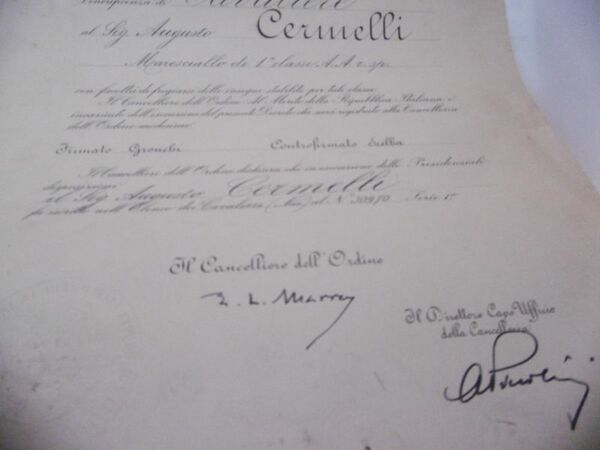 l'onorificenza di Cavaliere
al Sig. Augusto Cermelli
Maresciallo di 1ª classe A.A.r.sp.
con facoltà di fregiarsi delle insegne stabilite per tale classe.
Il Cancelliere dell'Ordine Al Merito della Repubblica Italiana è
incaricato dell'esecuzione del presente Decreto che sarà registrato alla Cancelleria
dell'Ordine medesimo
Firmato Gronchi Controfirmato Scelba
Il Cancelliere dell'Ordine dichiara che in esecuzione delle Presidenziali
disposizioni
il Sig. Augusto Cermelli
fu iscritto nell'Elenco dei Cavalieri (Naz) al N° 30970 Serie 1ª
Il Cancelliere dell'Ordine
Il Direttore Capo Ufficio
della Cancelleria